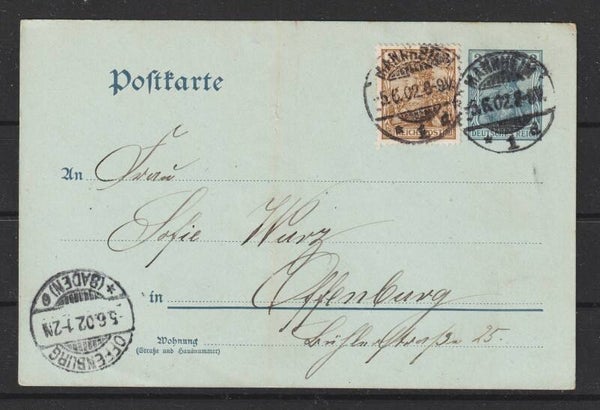 Postkarte
MANNHEIM
5.6.02.8-9V.
* 1 d
REICHSPOST
MANNHEIM
5.6.02.8-9V.
* 1 d
DEUTSCHES REICH
An Frau
Sofie Wurz
in Offenburg
Wohnung
(Straße und Hausnummer)
Bühlerstraße 25.
* (BADEN)
5.6.02.1-2N
OFFENBURG